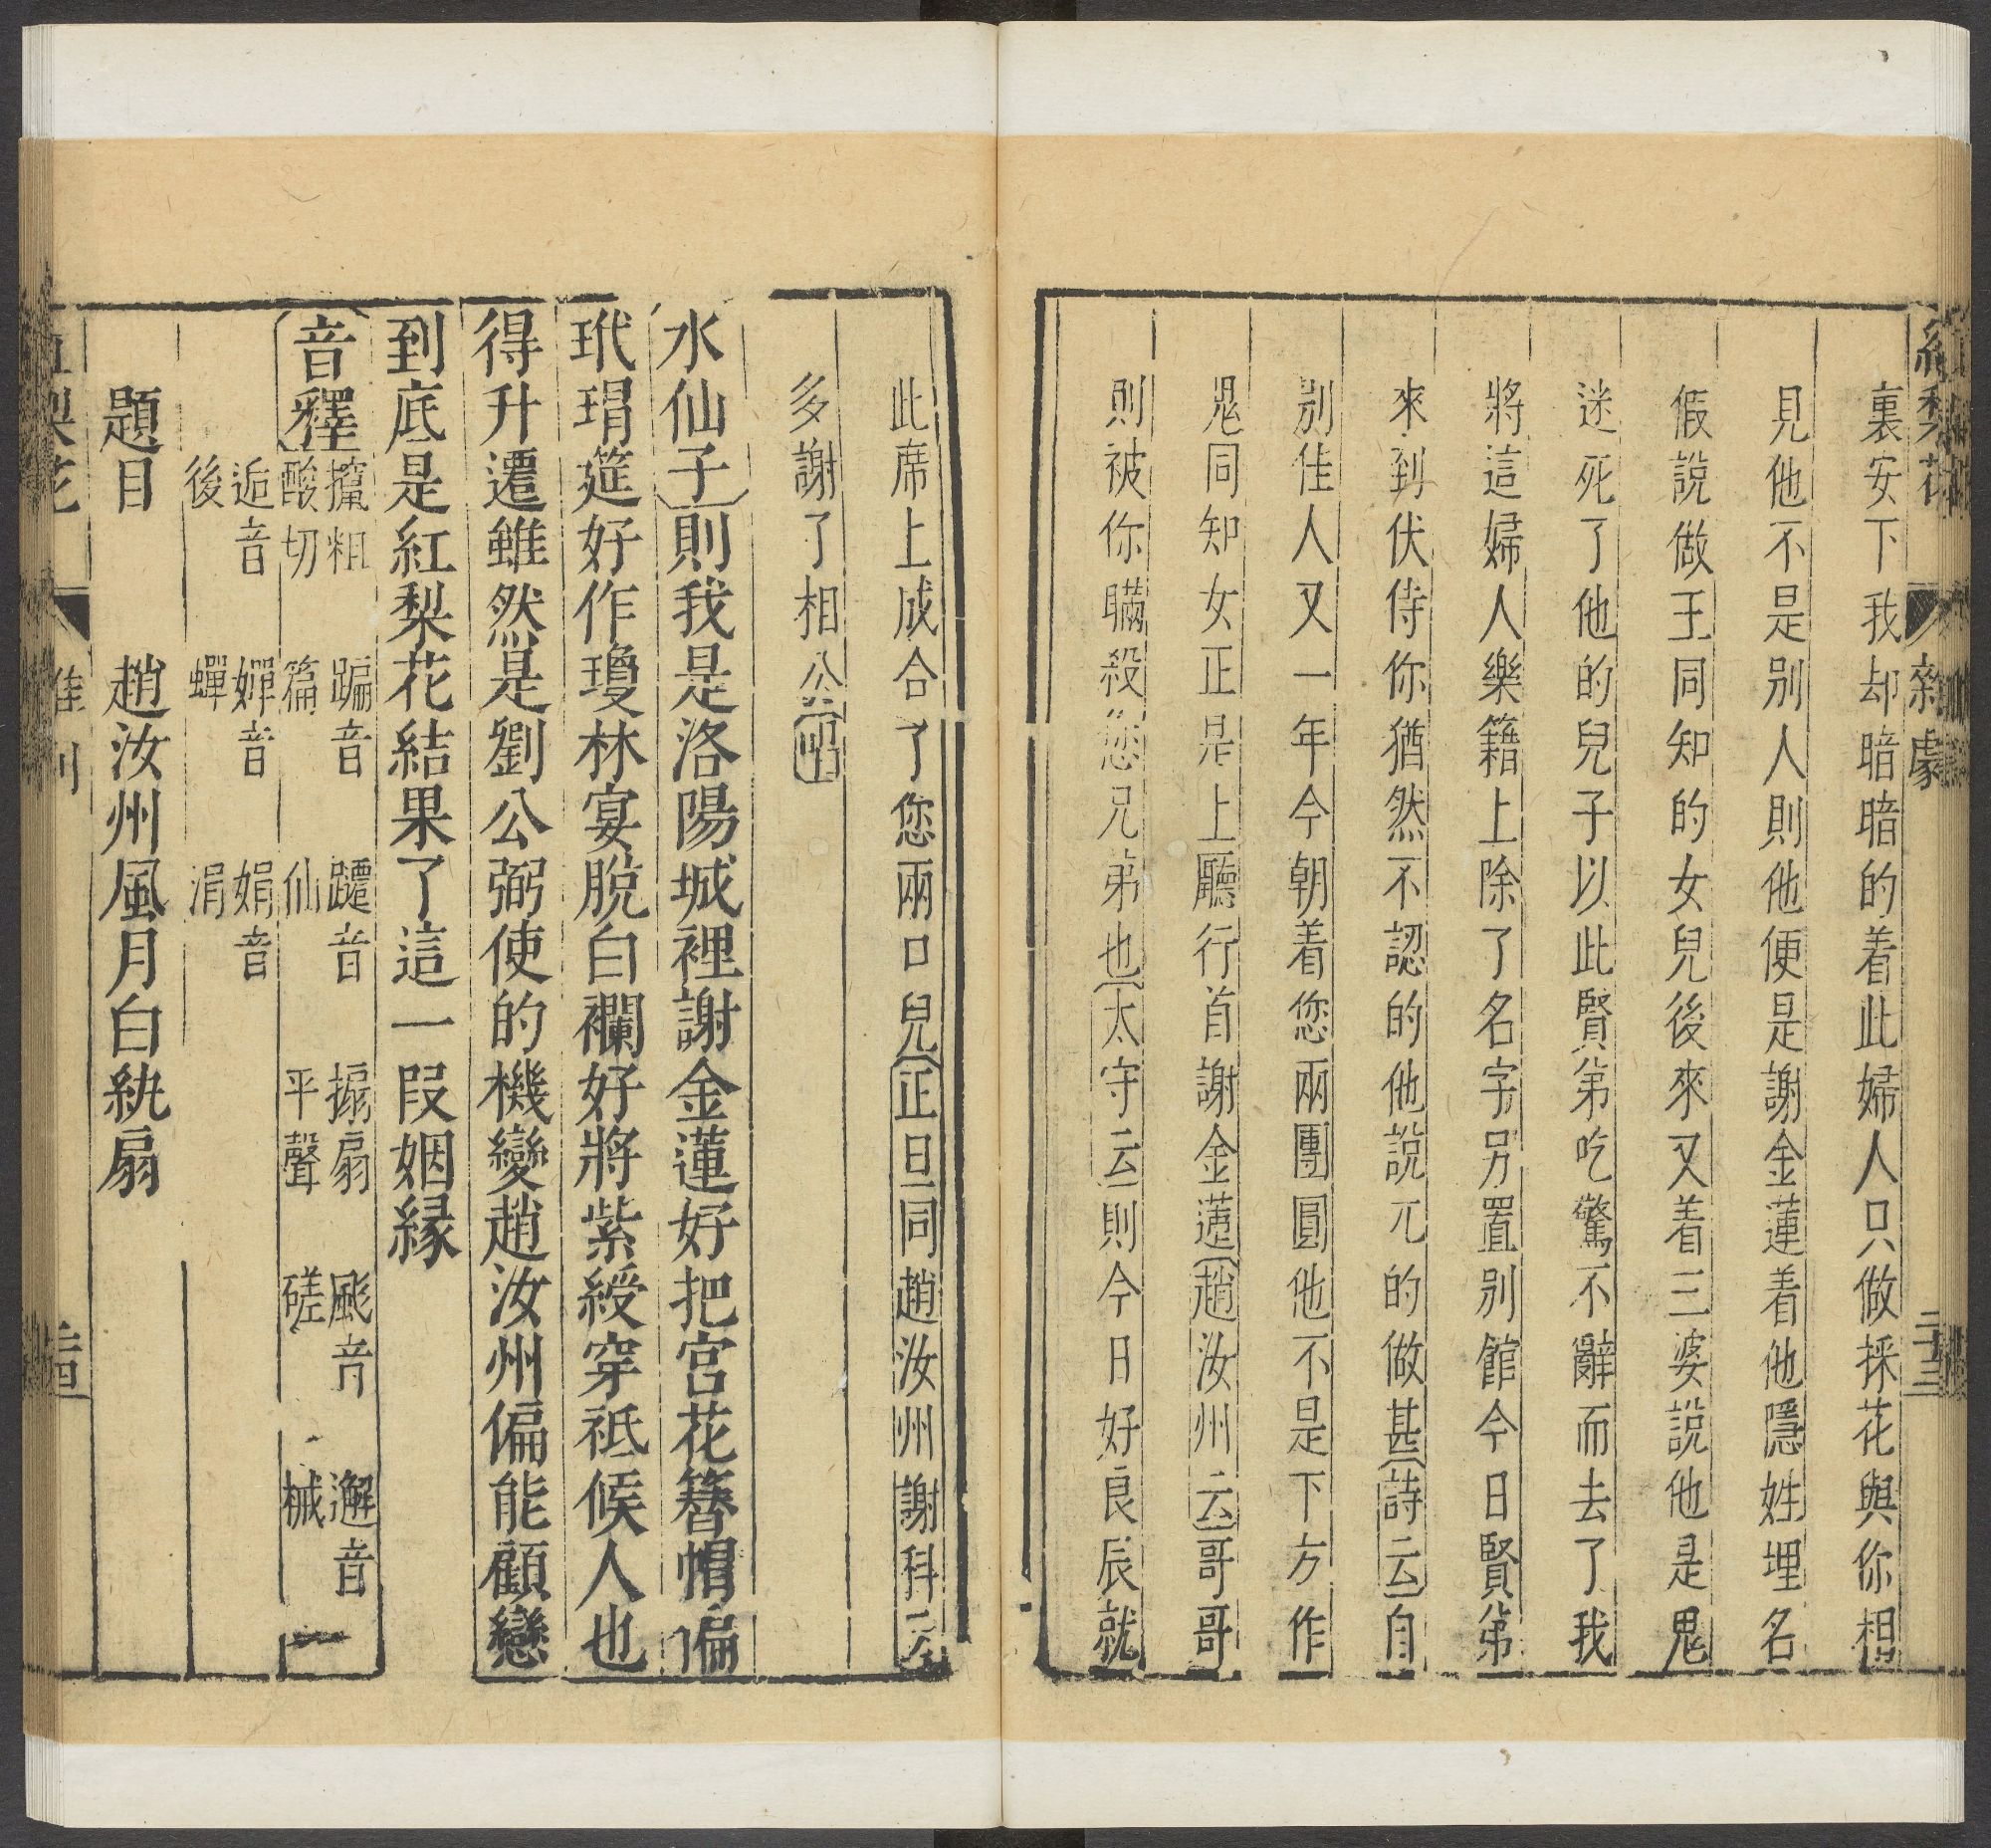 紅梨花 雜劇 二十三
裏安下我却暗暗的着此婦人只做採花與你相
見他不是別人則他便是謝金蓮着他隱姓埋名
假說做王同知的女兒後來又着三婆說他是鬼
迷死了他的兒子以此賢弟吃驚不辭而去了我
將這婦人樂籍上除了名字另置別館今日賢弟
來到伏侍你猶然不認的他說兀的做甚詩云自
別佳人又一年今朝着您兩團圓他不是下方作
鬼同知女正是上廳行首謝金蓮趙汝州云哥哥
則被你瞞殺您兄弟也太守云則今日好良辰就
此席上成合了您兩口兒正旦同趙汝州謝科云
多謝了相公
水仙子則我是洛陽城裡謝金蓮好把宮花簪帽偏
玳瑁筵好作瓊林宴脫白襴好將紫綬穿祗候人也
得升遷雖然是劉公弼使的機變趙汝州偏能顧戀
到底是紅梨花結果了這一段姻縁
音釋 攛粗酸切 蹁音篇 躚音仙 搧扇平聲 髟音磋 邂音械
逅音後 嬋音蟬 娟音涓
題目 趙汝州風月白紈扇